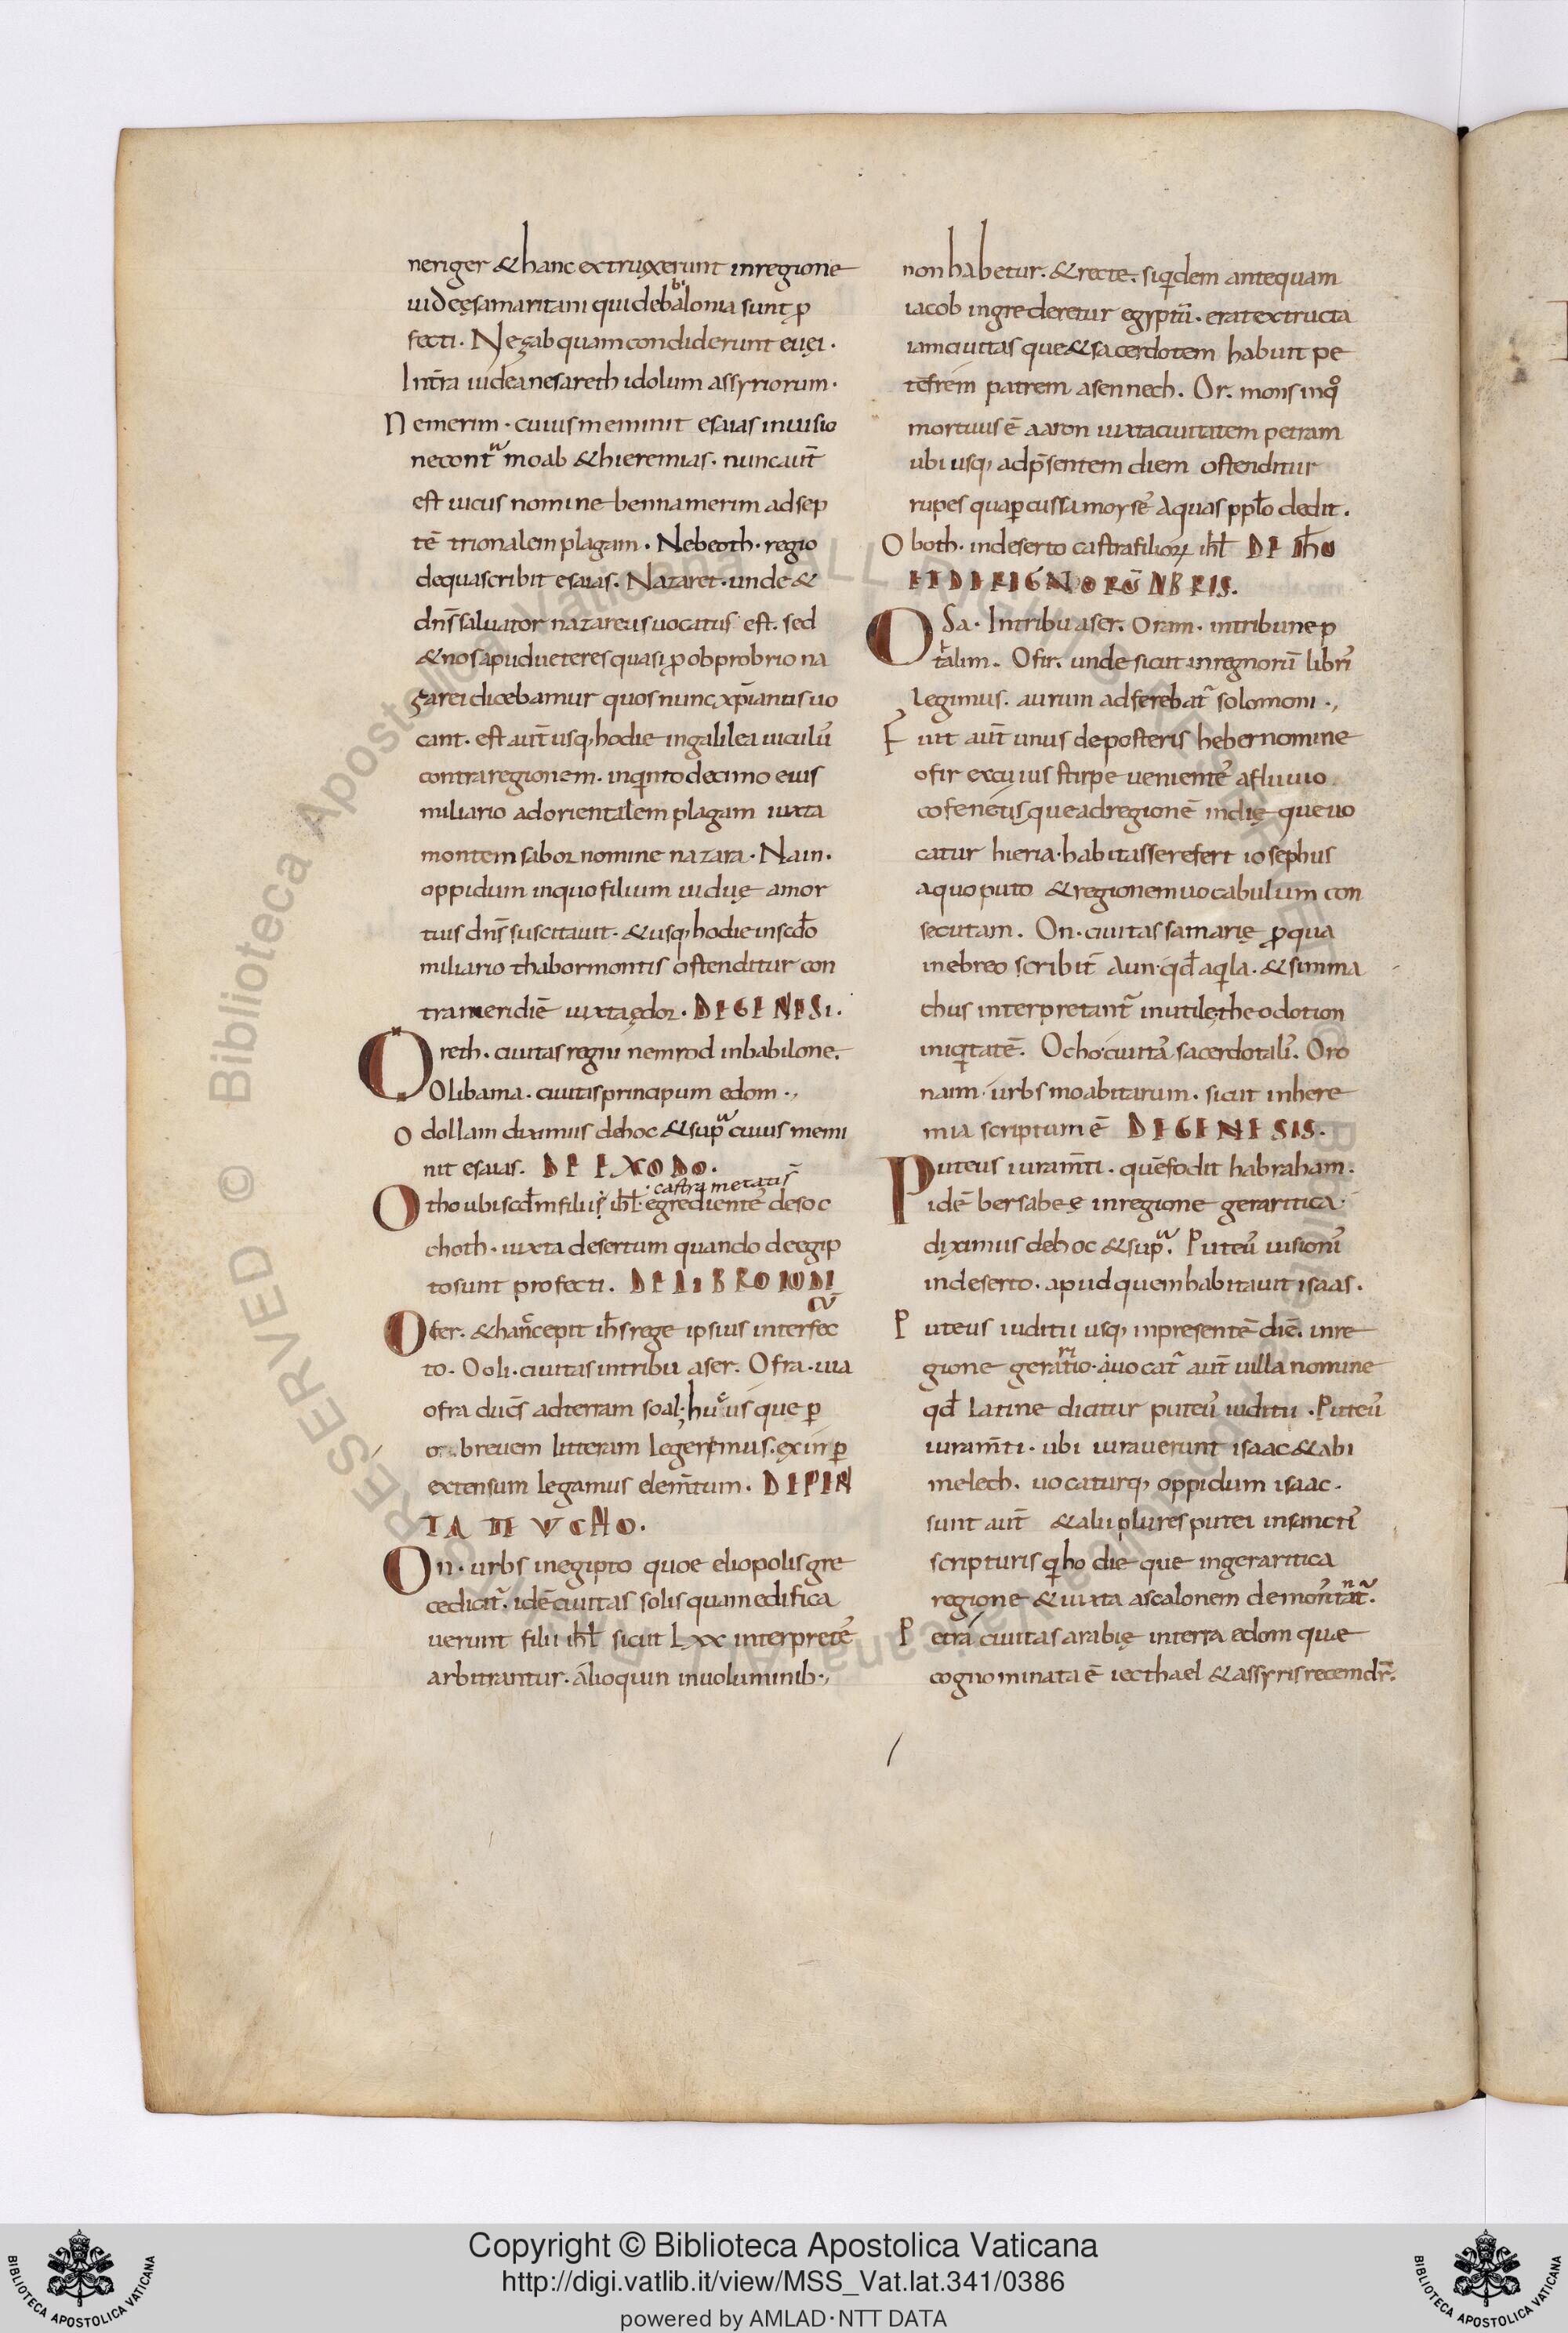 neriger &hanc extruxerunt inregione
iudeȩsamaritani quidebabilonia sunt ꝓ
fecti. Negab quamcondiderunt euȩi.
Int̄ra iudeanesareth idolum assyriorum.
Nemerim. cuius meminit esaias inuisio
necontra moab &hieremias. nuncaut̄
est uicus nomine bennamerim adsep
tē trionalem plagam. Nebeoth. regio
dequascribit esaias. Nazaret. unde &
dn̄s saluator nazareus uocatus est. sed
&nos apudueteres quasi ꝓ obprobrio na
zarei dicebamur quos nunc xp̄ianus uo
cant. est aut̄ usq; hodie ingalilea uiculū
contraregionem. inqinto decimo eius
miliario adorientalem plagam iuxta
montem sabor nomine nazara. Nain.
oppidum inquo filium uiduȩ amor
tuis dn̄s suscitauit. &usq; hodie inscd̄o
miliario thabor montis ostenditur con
trameridiē iuxtaȩdor. DE GENESI.
Oreth. ciuitas regni nemrod inbabilone.
Olibama. ciuitis principum edom.,
Odollam diximus dehoc &supra cuius memi
nit esaias. DE EXODO.
castra metatis̄
Otho ubiscd̄m filiis ihl̄. egredientē desoc
choth. iuxta desertum quando deegip
tosunt profecti. DE LIBRO IUDI
CŪ
Ofer. &han̄cepit ih̄s rege ipsius interfec
to. Ooli. ciuitas intribu aser. Ofra. uia
ofra duc̄s adterram soal. hucus que ꝑ
o brevem litteram legeremus. exin ꝑ
extensum legamus elem̄tum. DE PEN
TATEUCHO.
On. urbs inegipto quoe eliopolis gre
cedicit̄. idē ciuitas solis quam edifica
uerunt filii ihl̄ sicut Lxx interpretē
arbitrantur. alioquin inuoluminib.,
non habetur. &recte. siqidem antequam
iacob ingrederetur egyptū. erat extructa
iamciuitas que&sacerdotem habuit pe
tefrem patrem asennech. Or. mons inqo
mortuus ē aaron iuxtaciuitatem petram
ubi usq; adp̄sentem diem ostenditur
rupes quaꝑcussa moysē aquas pplo dedit.
Oboth. indeserto castra filioꝝ ihl̄ DE IH̄O
ET DE REIGNORŪ LIBRIS.
OSa. Intribu aser. Oram. intribune p
talim. Ofir. unde sicut inregnorū libri
legimus. aurum adferebat̄ solomoni.,
Fuit aut̄ unus deposteris heber nomine
ofir excuius stirpe uenientē afluuio
cofenetis, queadregionē indiȩ que uo
catur hieria. habitasserefert iosephus
aquo puto &regionem uocabulum con
secutam. On. ciuitas samariȩ ꝓqua
inebreo scribit̄ Aun. qd̄ aqila. &simma
chus interpretant̄ inutile, theodotion
iniqitatē. Ocho. ciuitā sacerdotalī. Oro
naim. urbs moabitarum. sicut inhere
mia scriptum ē DE GENESIS.
Puteus iuram̄ti. quēfodit habraham.
idē bersabeȩ inregione geraritica.
diximus dehoc &supra. Puteū uisionī
indeserto. apud quem habitauit isaas.
Puteus iuditii usq; inpresentē diē. inre
gione geraritio. auocat̄ aut̄ uilla nomine
qd̄ Latine dicitur puteū iuditii. Puteū
iuram̄ti. ubi iurauerunt isaac &abi
melech. uocaturq; oppidum isaac.
sunt aut̄ &alii plures putei insanctī
scripturis qi hodie que ingeraritica
regione &iuxta ascalonem demonstrant̄.
Petra ciuitas arabiȩ interra edom que
cognominata ē iecthael &assyris recem dr̄.
Copyright © Biblioteca Apostolica Vaticana
http://digi.vatlib.it/view/MSS_Vat.lat.341/0386
powered by AMLAD·NTT DATA